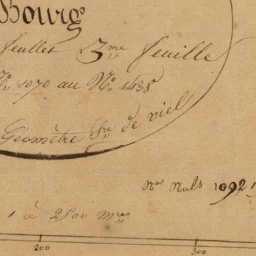 Bourg
feuillet 3me feuille
No 1070 au No 1438
Géomètre Sr de viel
Nos Nuls 1092
1 à 2500 mes
200 300